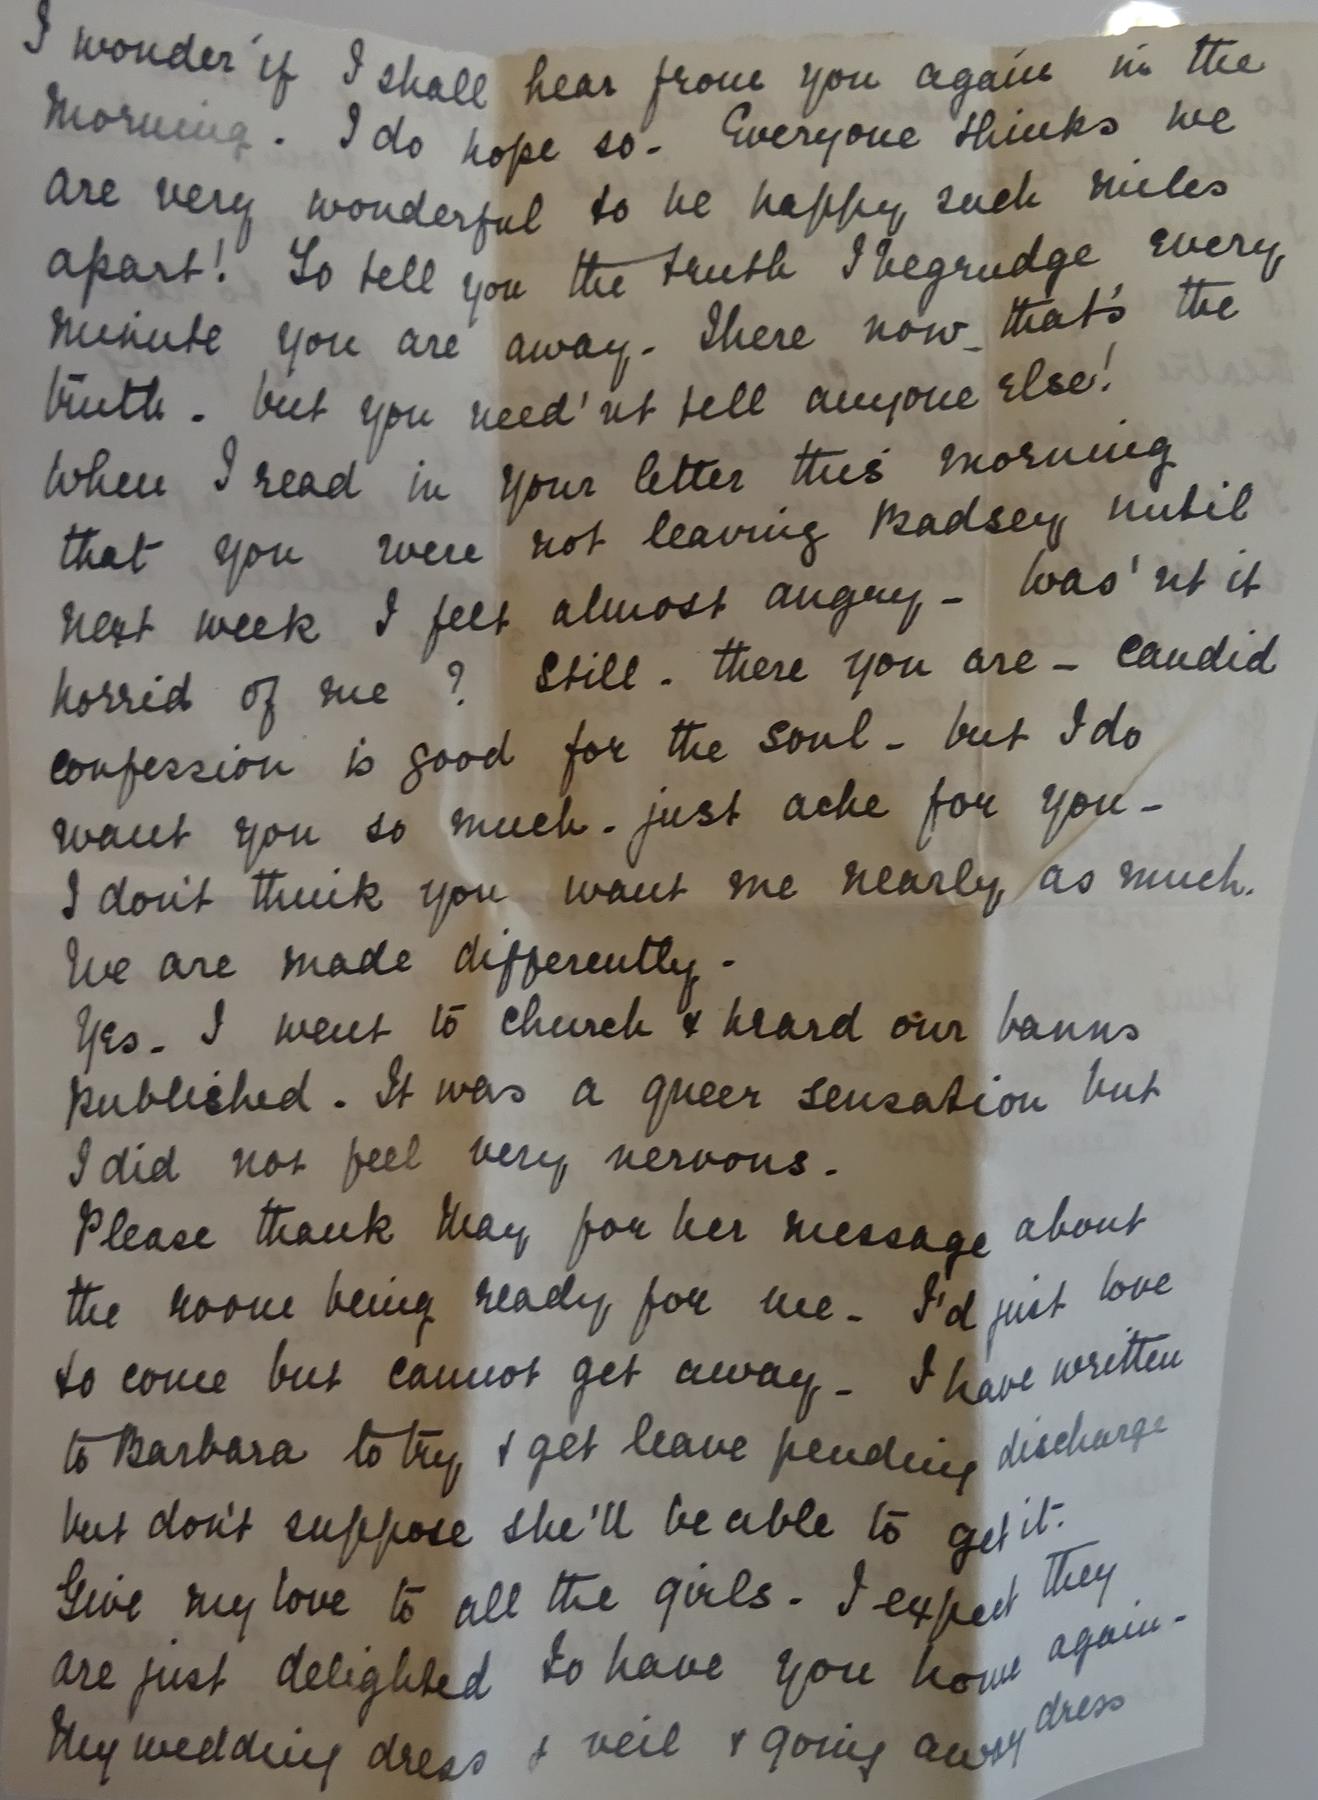 I wonder if I shall hear from you again in the
morning. I do hope so. Everyone thinks we
are very wonderful to be happy such miles
apart! To tell you the truth I begrudge every
minute you are away. There now that's the
truth. but you need'nt tell anyone else!
When I read in your letter this morning
that you were not leaving Badsey until
next week I felt almost angry - Was'nt it
horrid of me ? Still - there you are - candid
confession is good for the soul - but I do
want you so much - just ache for you -
I don't think you want me nearly as much.
We are made differently.
Yes. I went to church & heard our banns
published. It was a queer sensation but
I did not feel very nervous.
Please thank May for her message about
the room being ready for me - I'd just love
to come but cannot get away - I have written
to Barbara to try & get leave pending discharge
but don't suppose she'll be able to get it.
Give my love to all the girls. I expect they
are just delighted to have you home again -
My wedding dress & veil & going away dress